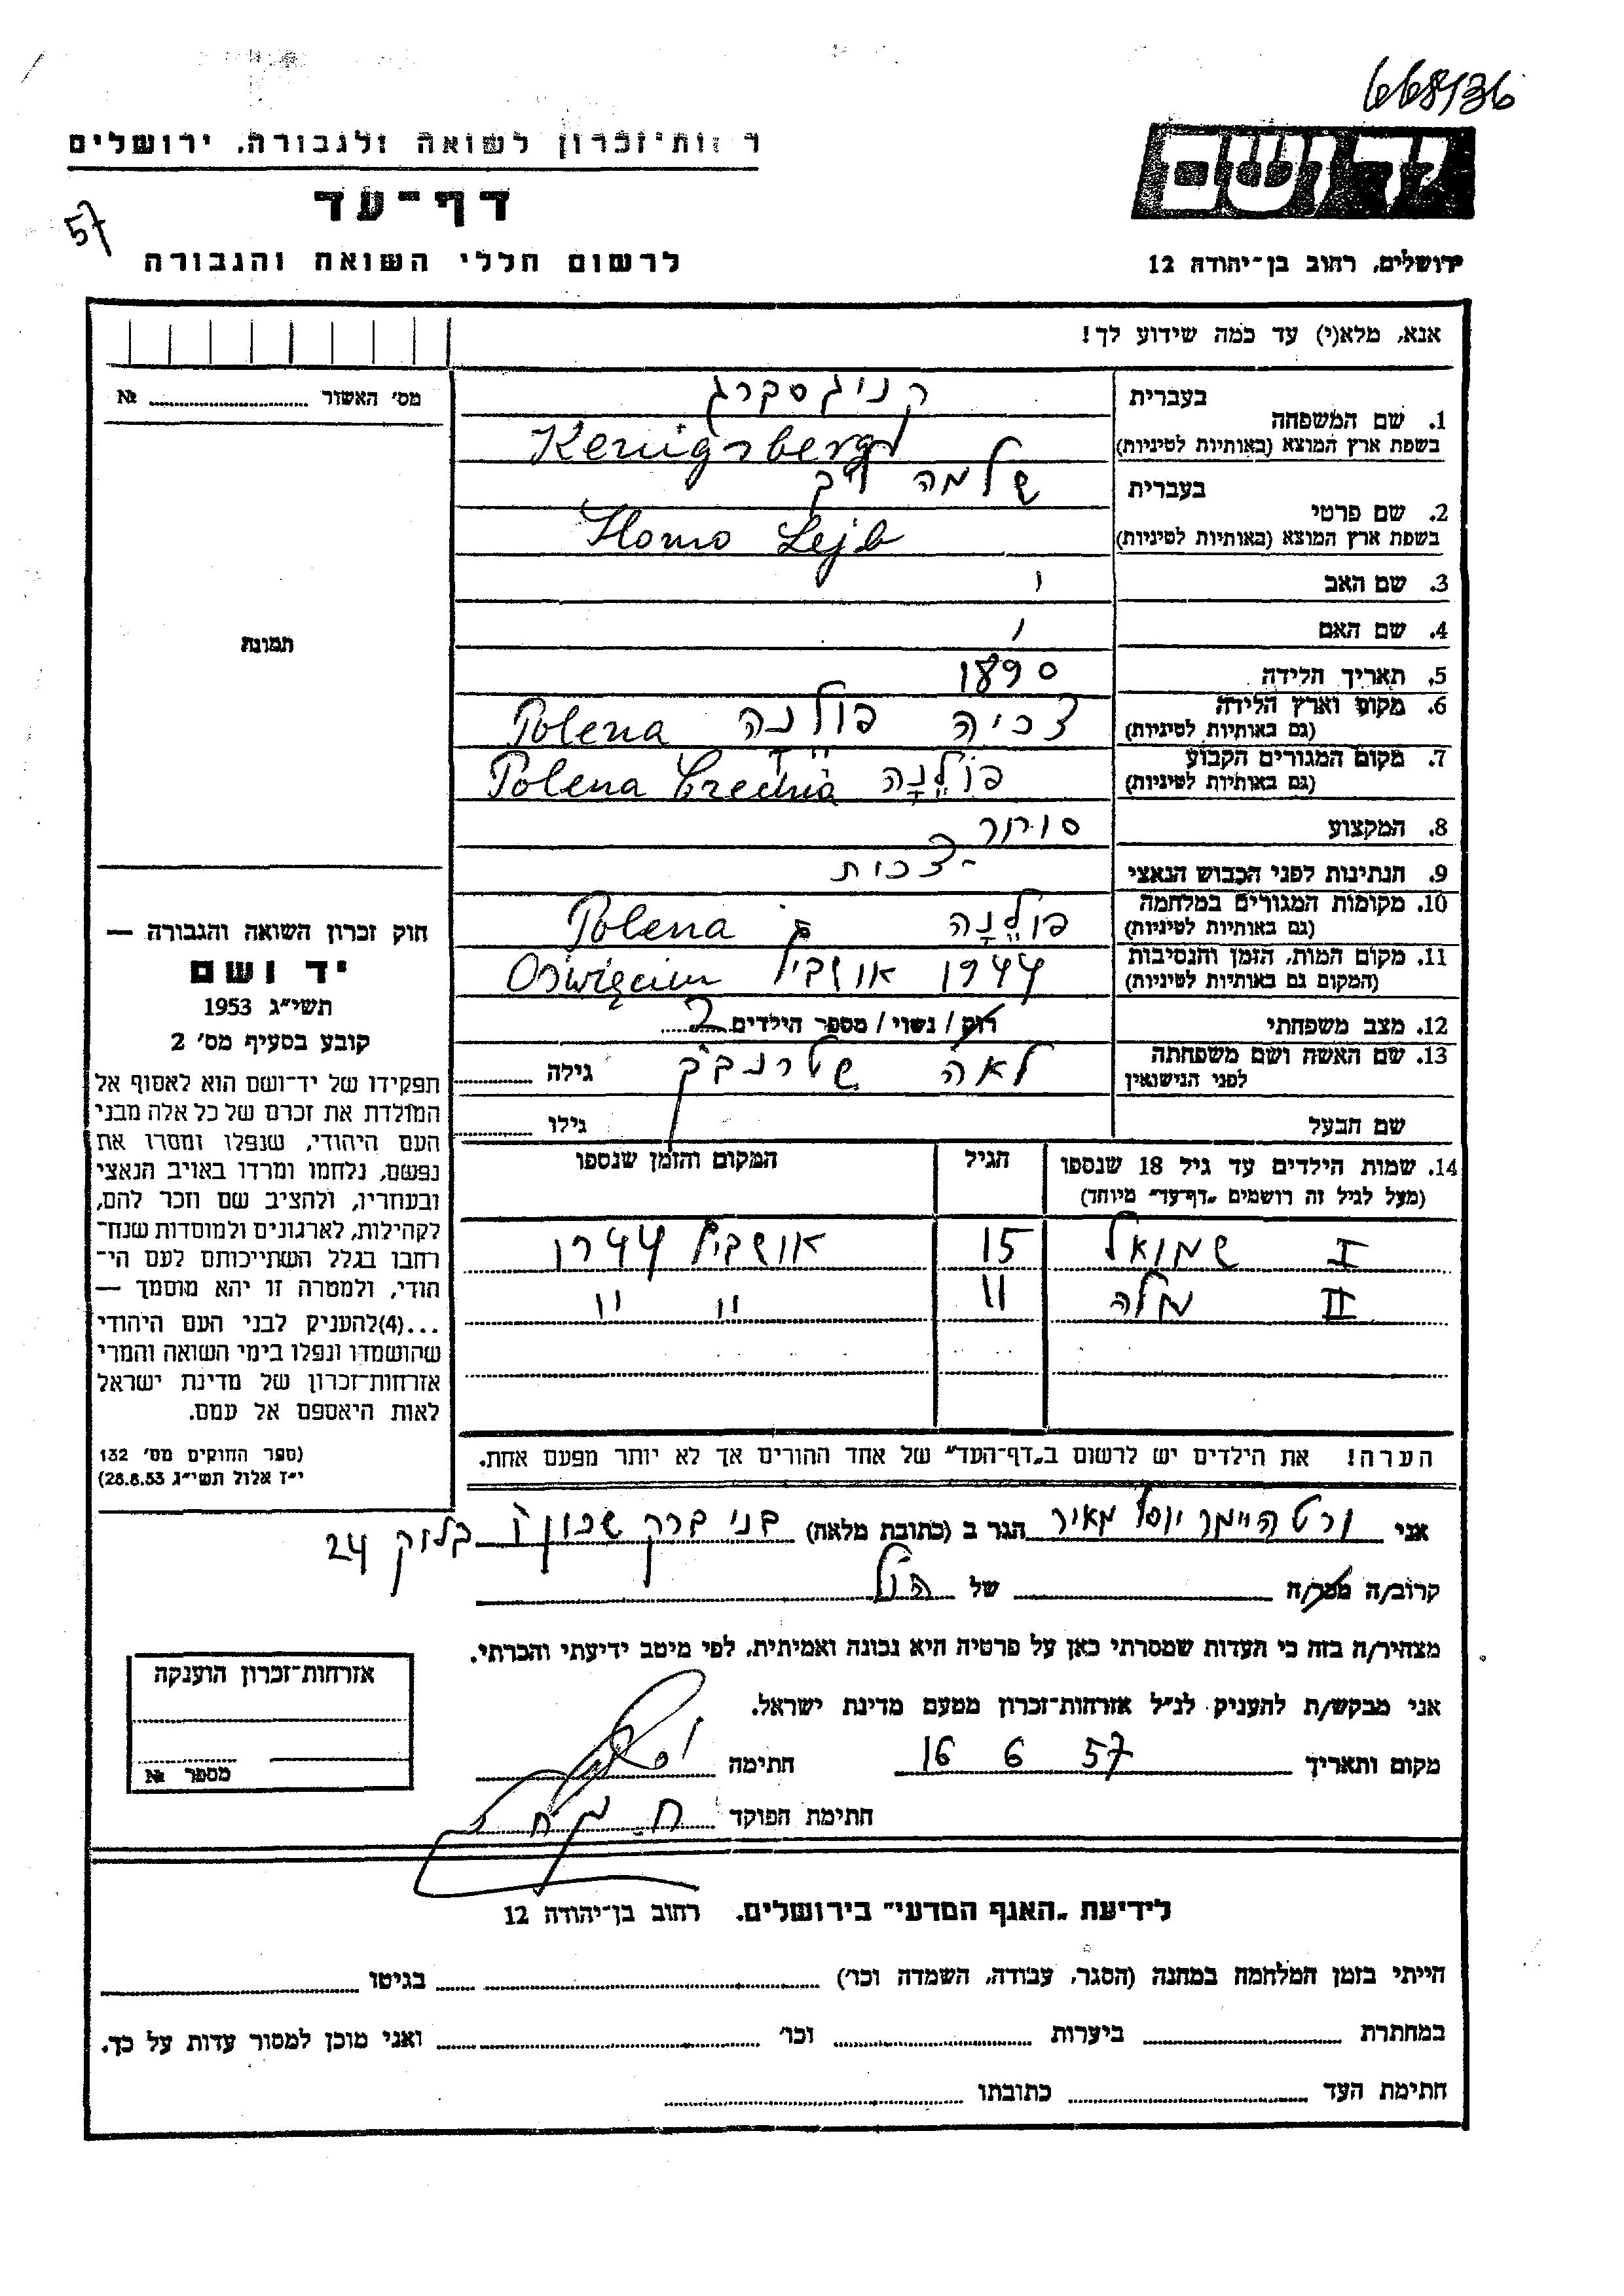 668136
ר שות־זכרון לשואה ולגבורה, ירושלים
יד ושם
דף־עד
57
לרשום חללי השואה והגבורה
ירושלים, רחוב בן־יהודה 12
אנא, מלא(י) עד כמה שידוע לך!
מס׳ האשור № ........
בעברית
1. שם המשפחה
קניגסברג
בשפת ארץ המוצא (באותיות לטיניות)
Kenigsberg
בעברית
2. שם פרטי
שלמה ליב
בשפת ארץ המוצא (באותיות לטיניות)
Slomo Lejb
3. שם האב
4. שם האם
תמונת
5. תאריך הלידה 1890
6. מקום וארץ הלידה
(גם באותיות לטיניות)
צכיה פולנה Polena
7. מקום המגורים הקבוע
(גם באותיות לטיניות)
פולנה Polena
8. המקצוע סוחר
9. הנתינות לפני הכבוש הנאצי צכית
10. מקומות המגורים במלחמה
(גם באותיות לטיניות)
פולנה Polena
11. מקום המות, הזמן והנסיבות
(המקום גם באותיות לטיניות)
1944 אושביץ Oświęcim
12. מצב משפחתי רוק / נשוי / מספר הילדים 2
13. שם האשה ושם משפחתה
לפני הנישואין
לאה שטרנברג גילה
שם הבעל גילו
14. שמות הילדים עד גיל 18 שנספו הגיל המקום והזמן שנספו
(מעל לגיל זה רושמים „דף־עד״ מיוחד)
I שמואל 15 אושביץ 1944
II מלה 11 " "
הערה! את הילדים יש לרשום ב„דף־העד״ של אחד ההורים אך לא יותר מפעם אחת.
חוק זכרון השואה והגבורה —
יד ושם
תשי״ג 1953
קובע בסעיף מס׳ 2
תפקידו של יד־ושם הוא לאסוף אל
המולדת את זכרם של כל אלה מבני
העם היהודי, שנפלו ומסרו את
נפשם, נלחמו ומרדו באויב הנאצי
ובעוזריו, ולהציב שם וזכר להם,
לקהילות, לארגונים ולמוסדות שנח־
רחבו בגלל השתייכותם לעם הי־
הודי, ולמטרה זו יהא מוסמך —
...(4)להעניק לבני העם היהודי
שהושמדו ונפלו בימי השואה והמרי
אזרחות־זכרון של מדינת ישראל
לאות היאספם אל עמם.
(ספר החוקים מס׳ 132
י״ז אלול תשי״ג 28.8.53)
אני ורטהיימר יוסף מאיר הגר ב (כתובת מלאה) בני ברק שכון ו בלוק 24
קרוב/ה מכר/ה של הנ״ל
מצהיר/ה בזה כי העדות שמסרתי כאן על פרטיה היא נכונה ואמיתית, לפי מיטב ידיעתי והכרתי.
אני מבקש/ת להעניק לנ״ל אזרחות־זכרון מטעם מדינת ישראל.
מקום ותאריך 16 6 57 חתימה
חתימת הפוקד
אזרחות־זכרון הוענקה
מספר №
לידיעת „האגף המדעי״ בירושלים. רחוב בן־יהודה 12
הייתי בזמן המלחמה במחנה (הסגר, עבודה, השמדה וכר׳) בגיטו
במחתרת ביערות וכר׳ ואני מוכן למסור עדות על כך.
חתימת העד כתובתו